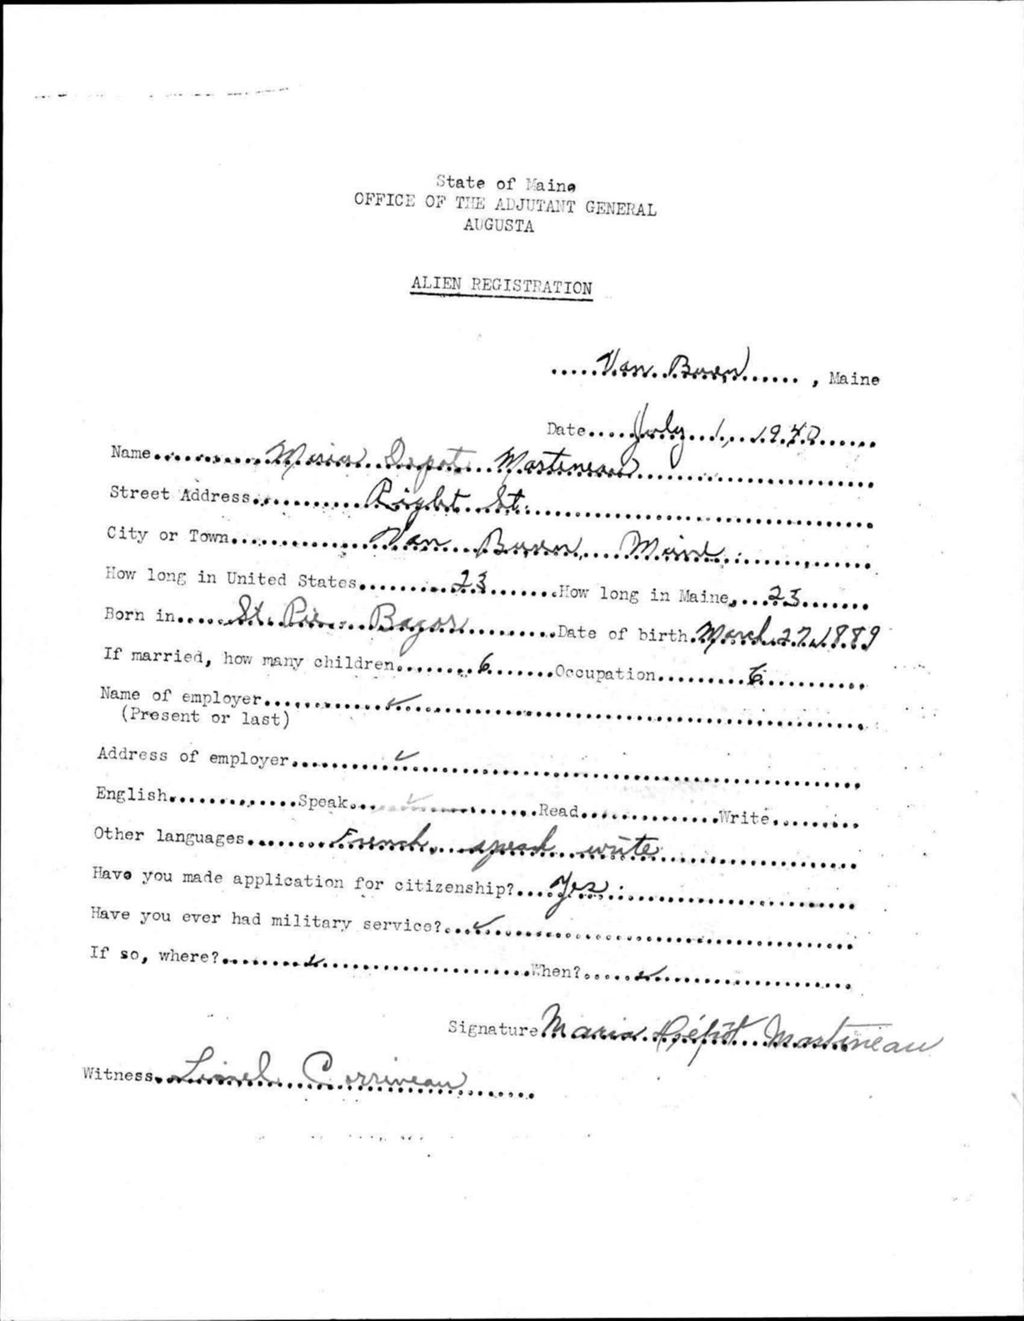 State of Maine
OFFICE OF THE ADJUTANT GENERAL
AUGUSTA
ALIEN REGISTRATION
Van Buren, Maine
Date July 1, 1940
Name Maria Depot Martineau
Street Address Right St.
City or Town Van Buren, Maine
How long in United States 23 How long in Maine 23
Born in St. Pie. Bagot Date of birth March 27, 1889
If married, how many children 6 Occupation
Name of employer ✓
(Present or last)
Address of employer ✓
English Speak ✓ Read Write
Other languages French, speak write
Have you made application for citizenship? Yes
Have you ever had military service? ✓
If so, where? ✓ When? ✓
Signature Maria Dépôt Martineau
Witness Lionel Corriveau